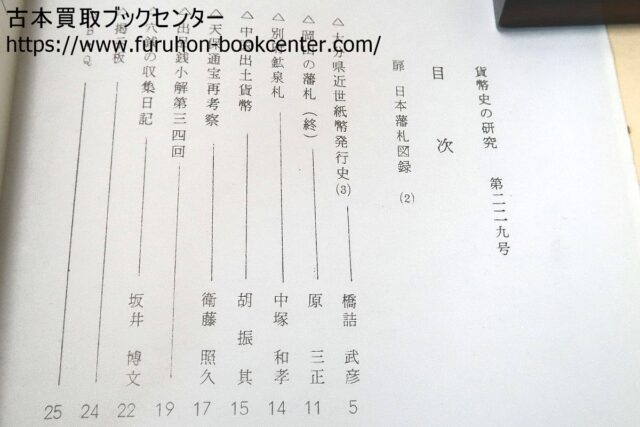 古本買取ブックセンター
https://www.furuhon-bookcenter.com/
貨幣史の研究 第二二九号
目次
扉 日本藩札図録 (2)
△大分県近世紙幣発行史(3) 橋詰 武彦 5
の藩札(終) 原 三正 11
△別 鉱泉札 中塚 和孝 14
△中 出土貨幣 胡 振其 15
△天保通宝再考察 衛藤 照久 17
銭小解第三四回 19
の収集日記 坂井 博文 22
掲示板 24
Q 25